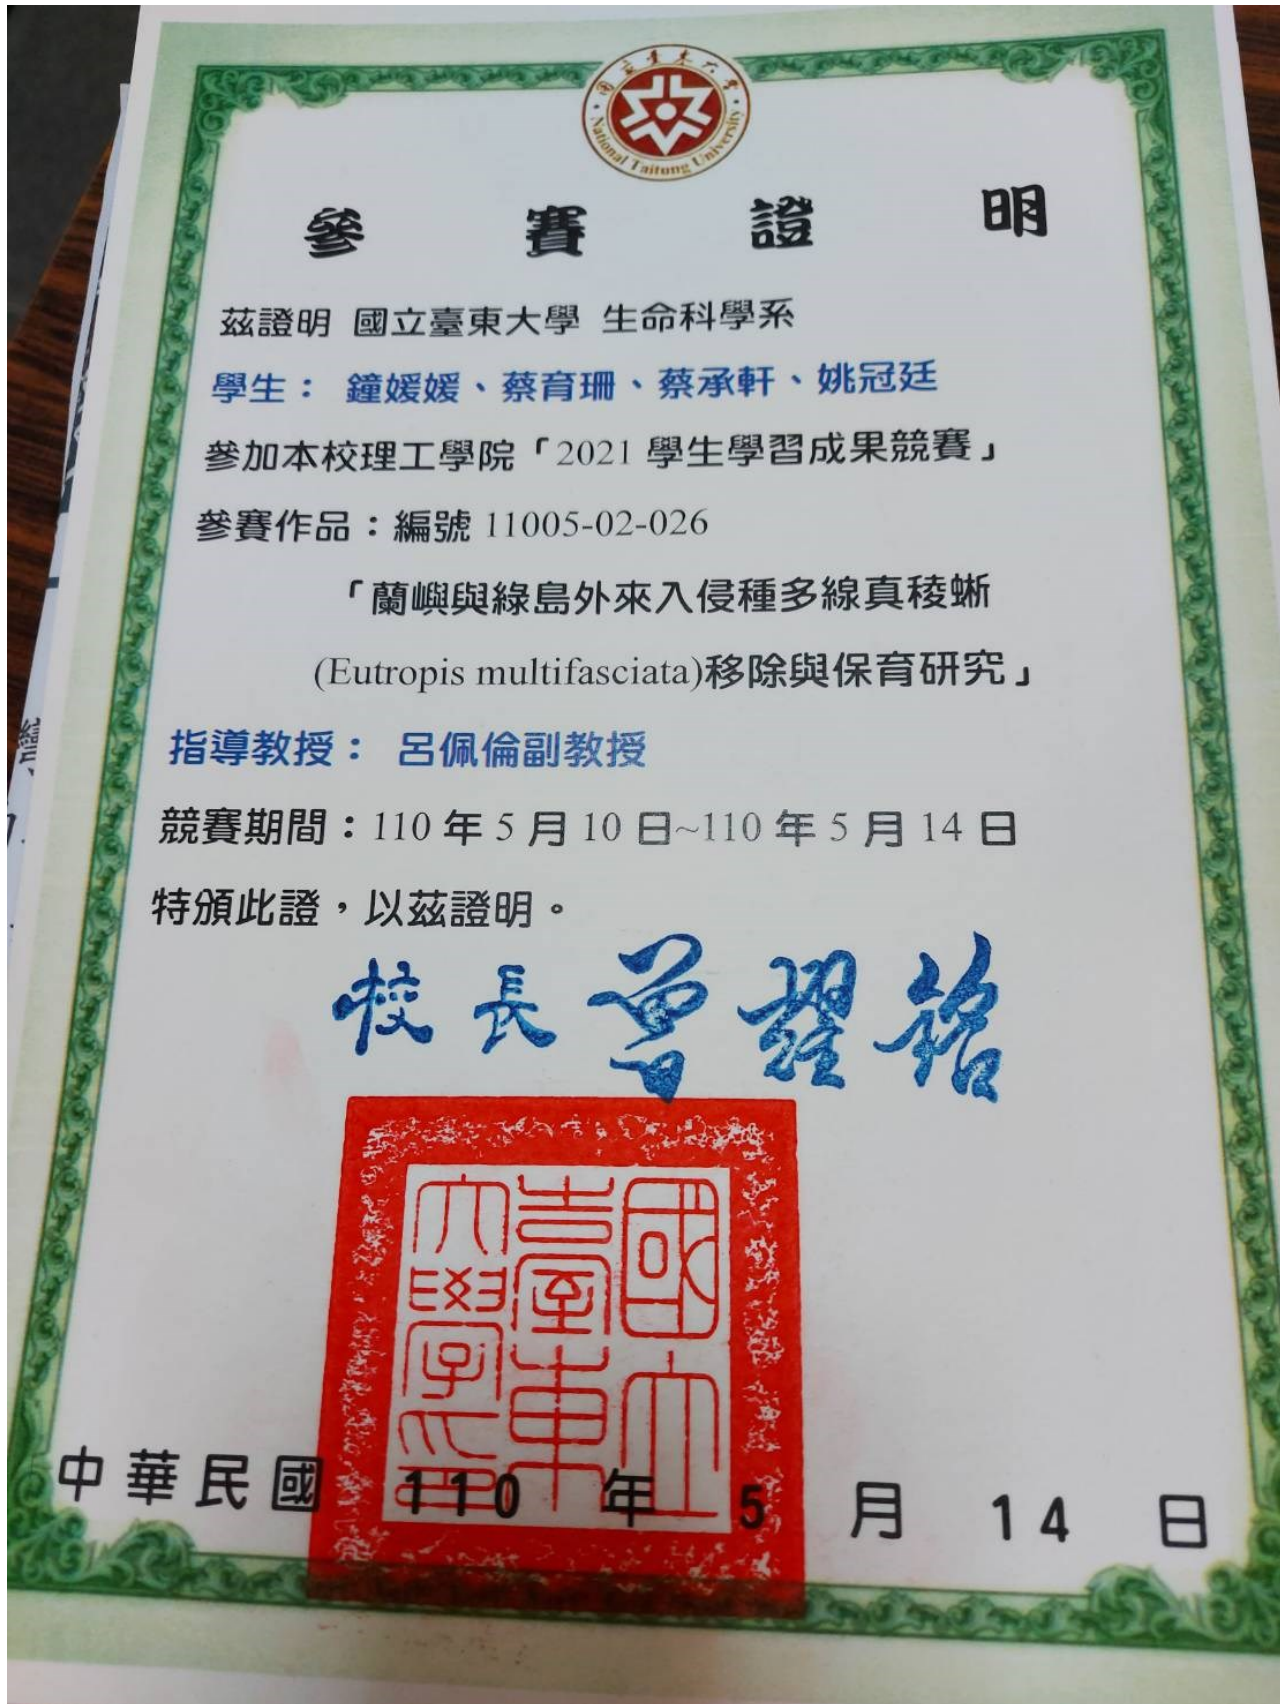 國立臺東大學
National Taitung University
參賽證明
茲證明 國立臺東大學 生命科學系
學生： 鐘媛媛、蔡育珊、蔡承軒、姚冠廷
參加本校理工學院「2021 學生學習成果競賽」
參賽作品：編號 11005-02-026
「蘭嶼與綠島外來入侵種多線真稜蜥
(Eutropis multifasciata)移除與保育研究」
指導教授： 呂佩倫副教授
競賽期間：110 年 5 月 10 日~110 年 5 月 14 日
特頒此證，以茲證明。
校長 曾耀銘
國立臺東大學印
中華民國 110 年 5 月 14 日